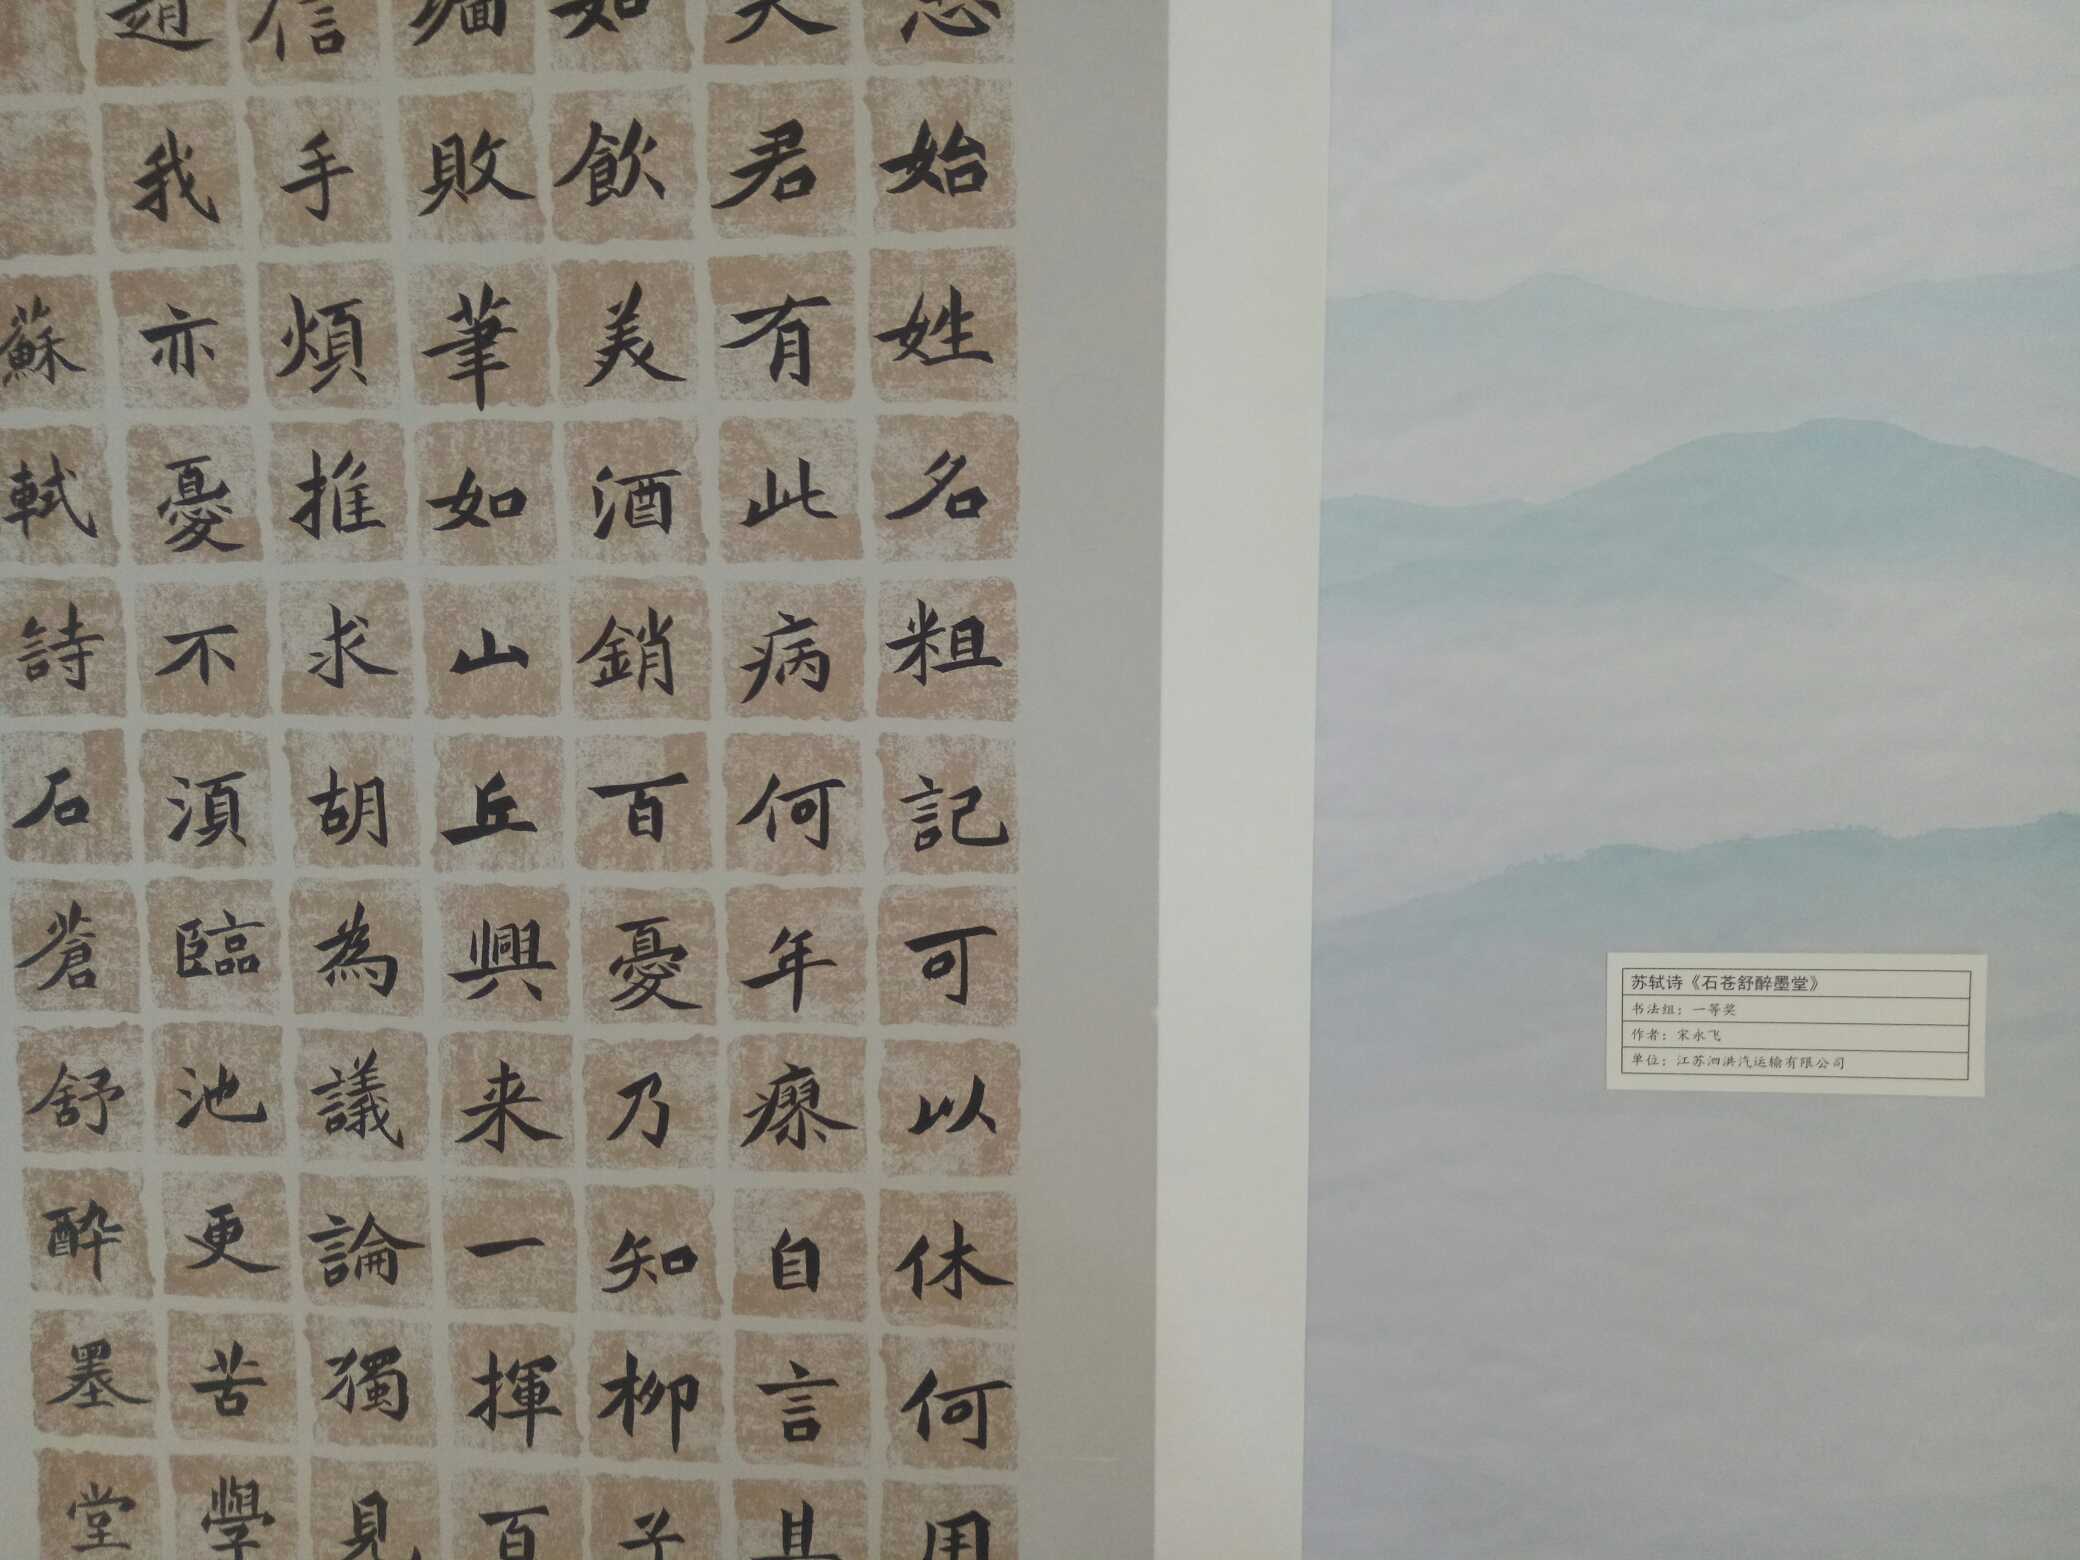 始姓名粗記可以休何用
君有此病何年瘳自言
如飲美酒銷百憂乃知柳子
敗筆如山丘興来一揮百
信手煩推求胡為議論獨見
趙我亦憂不湏臨池更苦學
蘇軾詩石蒼舒醉墨堂
苏轼诗《石苍舒醉墨堂》
书法组：一等奖
作者：宋永飞
单位：江苏泗洪汽运输有限公司